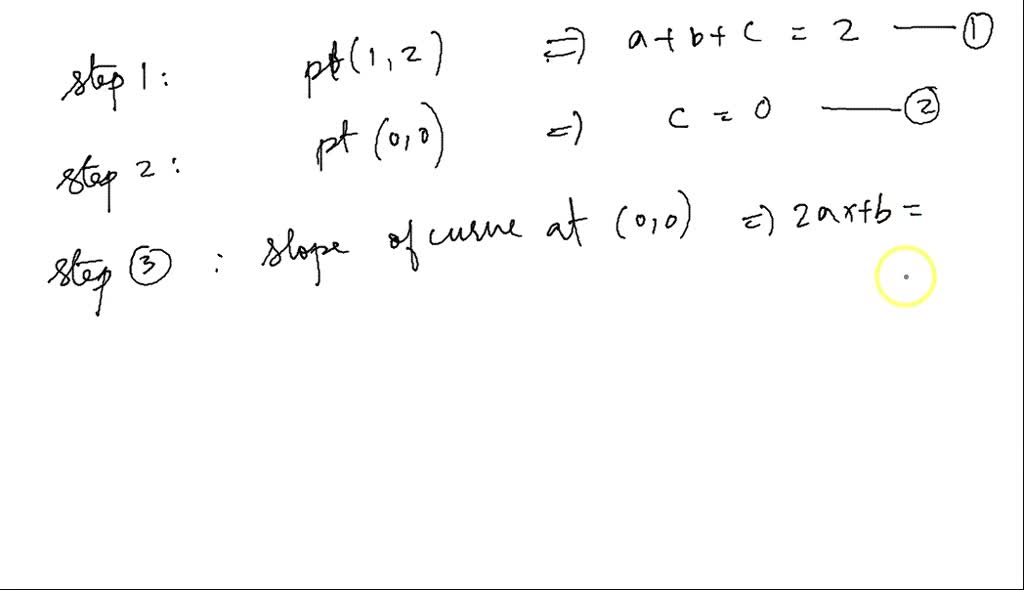 step 1: pt(1,2) => a+b+c = 2 —— ①
step 2: pt (0,0) => c = 0 —— ②
step ③ : slope of curve at (0,0) => 2ax+b =